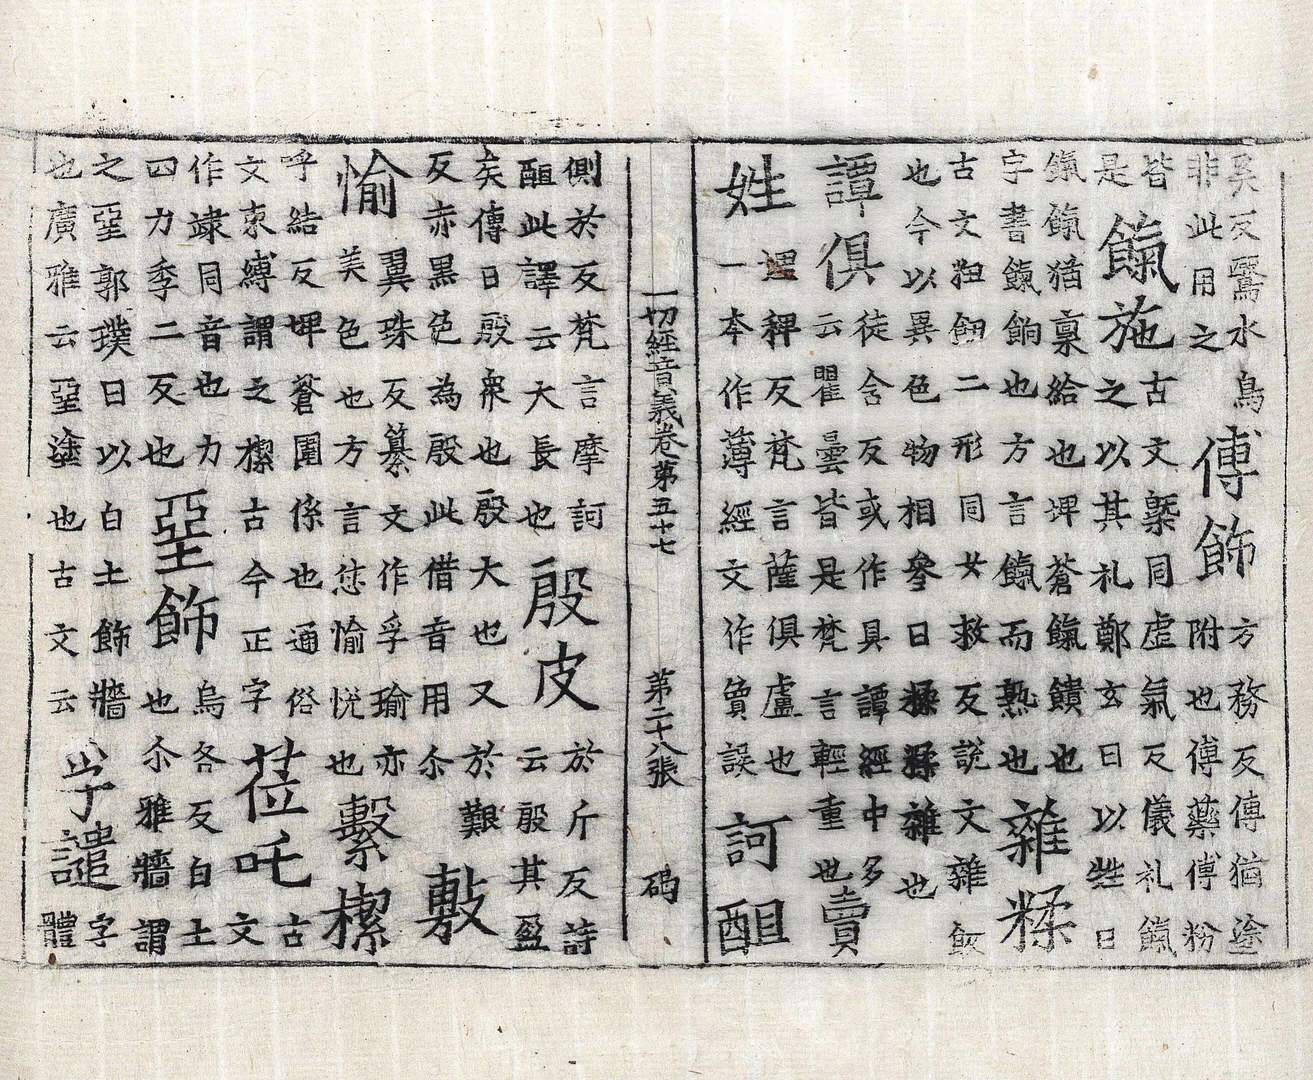 奚反鷖水鳥
非此用之
傅飾
方務反傅猶塗
附也傅藥傅粉
皆
是
餼施
古文槩同虛氣反儀礼餼
之以其礼鄭玄曰以甡曰
餼餼猶稟給也埤蒼餼饋也
字書餼餉也方言餼而熟也
雜糅
古文粈䬔二形同女救反說文雜飯
也今以異色物相參曰糅糅雜也
譚俱
徒含反或作具譚經中多
云瞿曇皆是梵言輕重也
賣
姓
理稗反梵言薩俱盧也
一本作薄經文作䝼誤
訶䣯
一切經音義卷第五十七 第二十八張 碣
側於反梵言摩訶
䣯此譯云大長也
殷皮
於斤反詩
云殷其盈
矣傳曰殷衆也殷大也又於艱
反赤黑色為殷此借音用尒
敷
愉
翼珠反纂文作孚瑜亦
美色也方言怤愉悅也
繫㓗
呼結反埤蒼圍係也通俗
文束縛謂之㮮古今正字
莅吒
古
文
作䇐同音也力
四力季二反也
堊飾
烏各反白土
也尒雅牆謂
之堊郭璞曰以白土飾牆
也廣雅云堊塗也古文云
譴
字
體